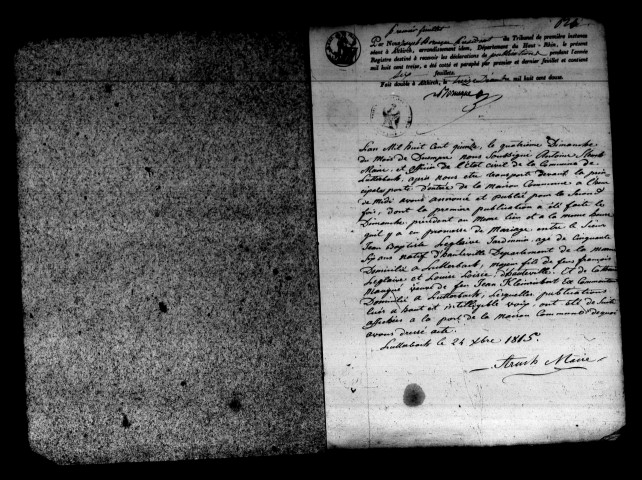 Premier feuillet
Par Nous Président du Tribunal de première instance
séant à Altkirch, arrondissement idem, Département du Haut-Rhin, le présent
Registre destiné à recevoir les déclarations de publications pendant l'année
mil huit cent treize, a été coté et paraphé par premier et dernier feuillet et contient
six feuillets.
Fait double à Altkirch, le mil huit cent douze.
L'an Mil huit cent quinze, le quatrieme Dimanche
du Mois de Decembre nous Soussigné Antoine Struch
Maire et officier de l'Etat civil de la Commune de
Lutterbach, apres nous etre transporté devant la prin
cipales porte d'entrée de la Maison Commune a l'heure
de Midi avons annoncé et publié pour la Seconde
fois, dont la premiere publication a été faite le
Dimanche precedent au Meme lieu et a la meme heure
qu'il y a en promesse de Mariage entre le Sieur
Jean Baptiste Leglaire Jardinier age de Cinquante
Six ans natif d'hauteville Departement de la
Domicilié a Lutterbach, fils de feu françois
Leglaire et Louise d'hauteville. Et de
veuve de feu Jean
Domicilié a Lutterbach, Lesquelles publications
lues a haut et intelligible voix, ont été de Suite
affichées a la port de la Maison Commune de quoi
avons dressé acte.
Lutterbach le 24 Xbre 1815.
Struch Maire